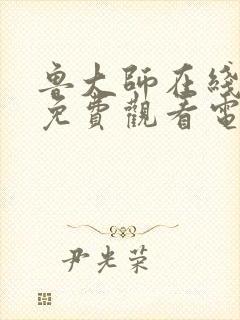 魯大師在綫
免費觀看電
尹光荣